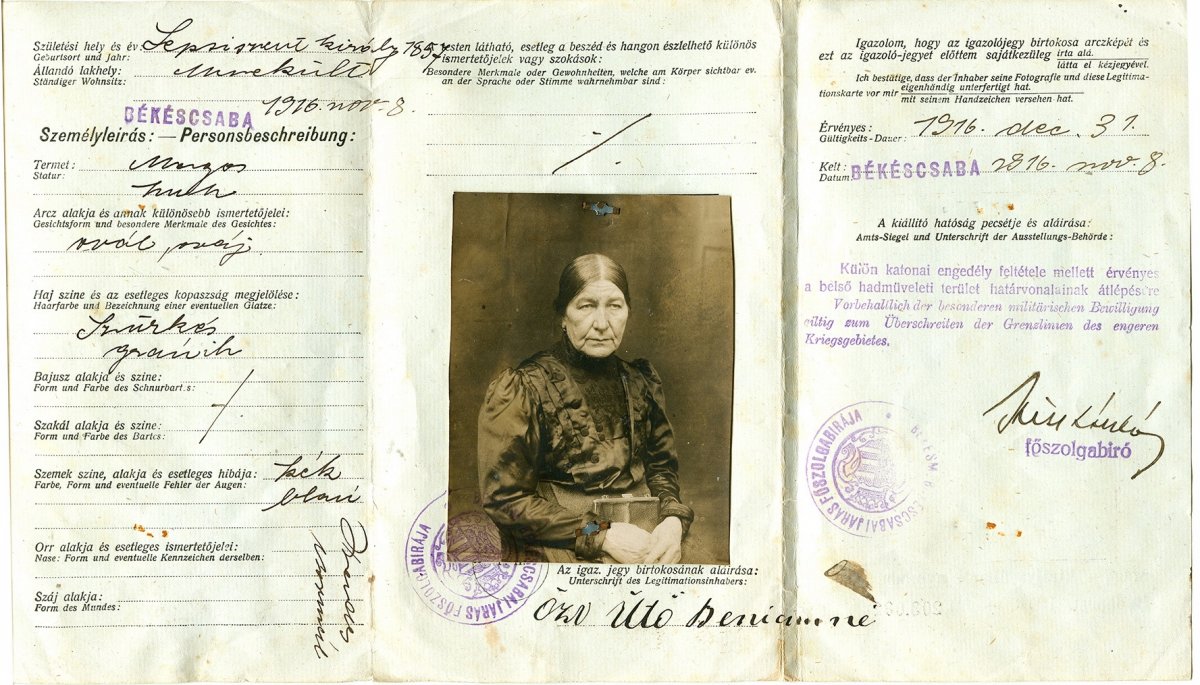 Születési hely és év: Sepsiszent király 1857
Geburtsort und Jahr:
Állandó lakhely:
Ständiger Wohnsitz:
BÉKÉSCSABA 1916. nov. 8.
Személyleirás: — Personsbeschreibung:
Termet: Magas
Statur: hoch
Arcz alakja és annak különösebb ismertetőjelei:
Gesichtsform und besondere Merkmale des Gesichtes:
ovál
Haj szine és az esetleges kopaszság megjelölése:
Haarfarbe und Bezeichnung einer eventuellen Glatze:
Szürkés
Bajusz alakja és szine:
Form und Farbe des Schnurbartes:
Szakál alakja és szine:
Form und Farbe des Bartes:
Szemek szine, alakja és esetleges hibája: kék
Farbe, Form und eventuelle Fehler der Augen: blau
Orr alakja és esetleges ismertetőjelei:
Nase: Form und eventuelle Kennzeichen derselben:
Száj alakja:
Form des Mundes:
Rendes
Normál
A testen látható, esetleg a beszéd és hangon észlelhető különös
ismertetőjelek vagy szokások:
Besondere Merkmale oder Gewohnheiten, welche am Körper sichtbar ev.
an der Sprache oder Stimme wahrnehmbar sind:
CSABAI JÁRÁS FŐSZOLGABIRÁJA
Az igaz. jegy birtokosának aláirása:
Unterschrift des Legitimationsinhabers:
Özv Ütő Beniaminné
Igazolom, hogy az igazolójegy birtokosa arczképét és
ezt az igazoló-jegyet előttem sajátkezüleg irta alá.
látta el kézjegyével.
Ich bestätige, dass der Inhaber seine Fotografie und diese Legitima-
tionskarte vor mir eigenhändig unterfertigt hat.
mit seinem Handzeichen versehen hat.
Érvényes: 1916. dec. 31.
Gültigkeits-Dauer:
Kelt: BÉKÉSCSABA 1916. nov. 8.
Datum:
A kiállitó hatóság pecsétje és aláirása:
Amts-Siegel und Unterschrift der Ausstellungs-Behörde:
Külön katonai engedély feltétele mellett érvényes
a belső hadműveleti terület határvonalainak átlépésére
Vorbehaltlich der besonderen militärischen Bewilligung
giltig zum Überschreiten der Grenzlinien des engeren
Kriegsgebietes.
főszolgabiró
BÉKÉSM. BÉKÉSCSABAI JÁRÁS FŐSZOLGABIRÁJA